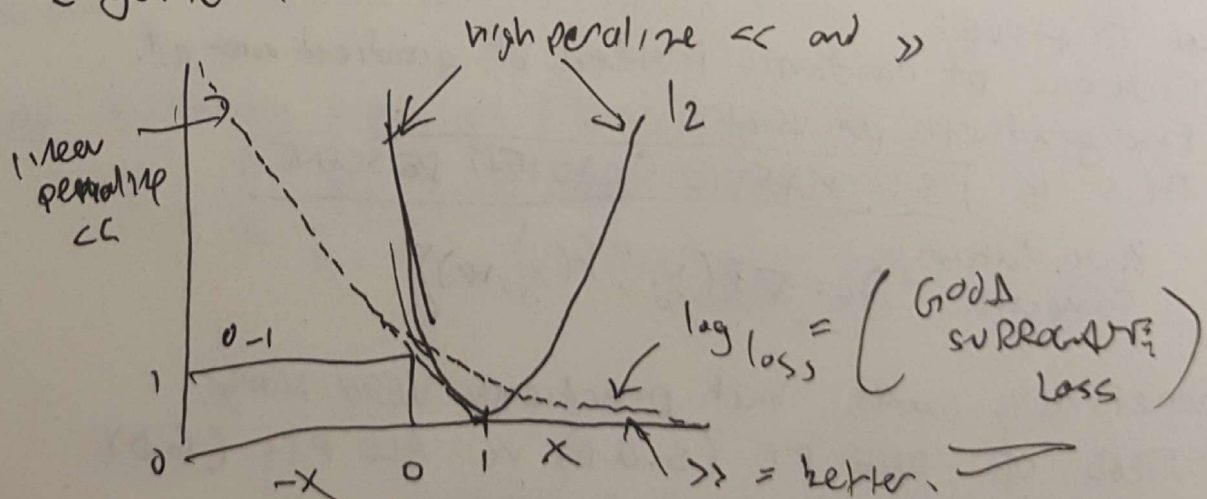 high penalize << and >>
l2
linear
penalize
<<
0-1
log loss = ( GOOD
SURROGATE
LOSS )
1
0
-x
0
1
x
>> = better.